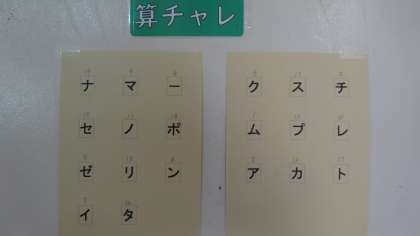 算チャレ
ナ マ ー
セ ノ ポ
ゼ リ ン
イ タ
ク ス チ
ム プ レ
ア カ ト